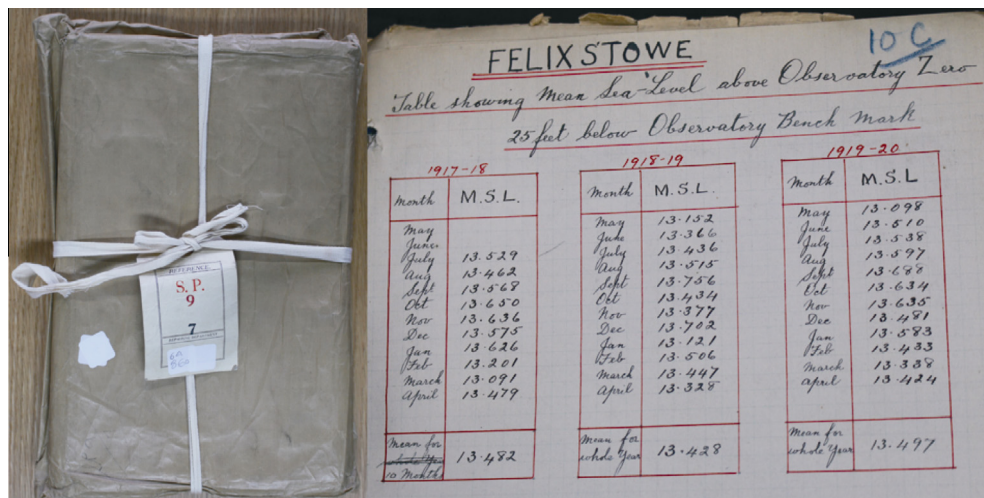 REFERENCE
S. P.
9
7
10 C
FELIXSTOWE
Table showing Mean Sea-Level above Observatory Zero
25 feet below Observatory Bench Mark
1917-18
Month M.S.L.
May
June
July 13.529
Aug 13.462
Sept 13.568
Oct 13.650
Nov 13.636
Dec 13.575
Jan 13.626
Feb 13.201
March 13.091
April 13.479
Mean for
whole Year 13.482
10 Months
1918-19
Month M.S.L.
May 13.152
June 13.366
July 13.436
Aug 13.515
Sept 13.756
Oct 13.434
Nov 13.377
Dec 13.702
Jan 13.121
Feb 13.506
March 13.447
April 13.328
Mean for
whole Year 13.428
1919-20
Month M.S.L
May 13.098
June 13.510
July 13.538
Aug 13.597
Sept 13.688
Oct 13.634
Nov 13.635
Dec 13.481
Jan 13.583
Feb 13.433
March 13.338
April 13.424
Mean for
whole Year 13.497